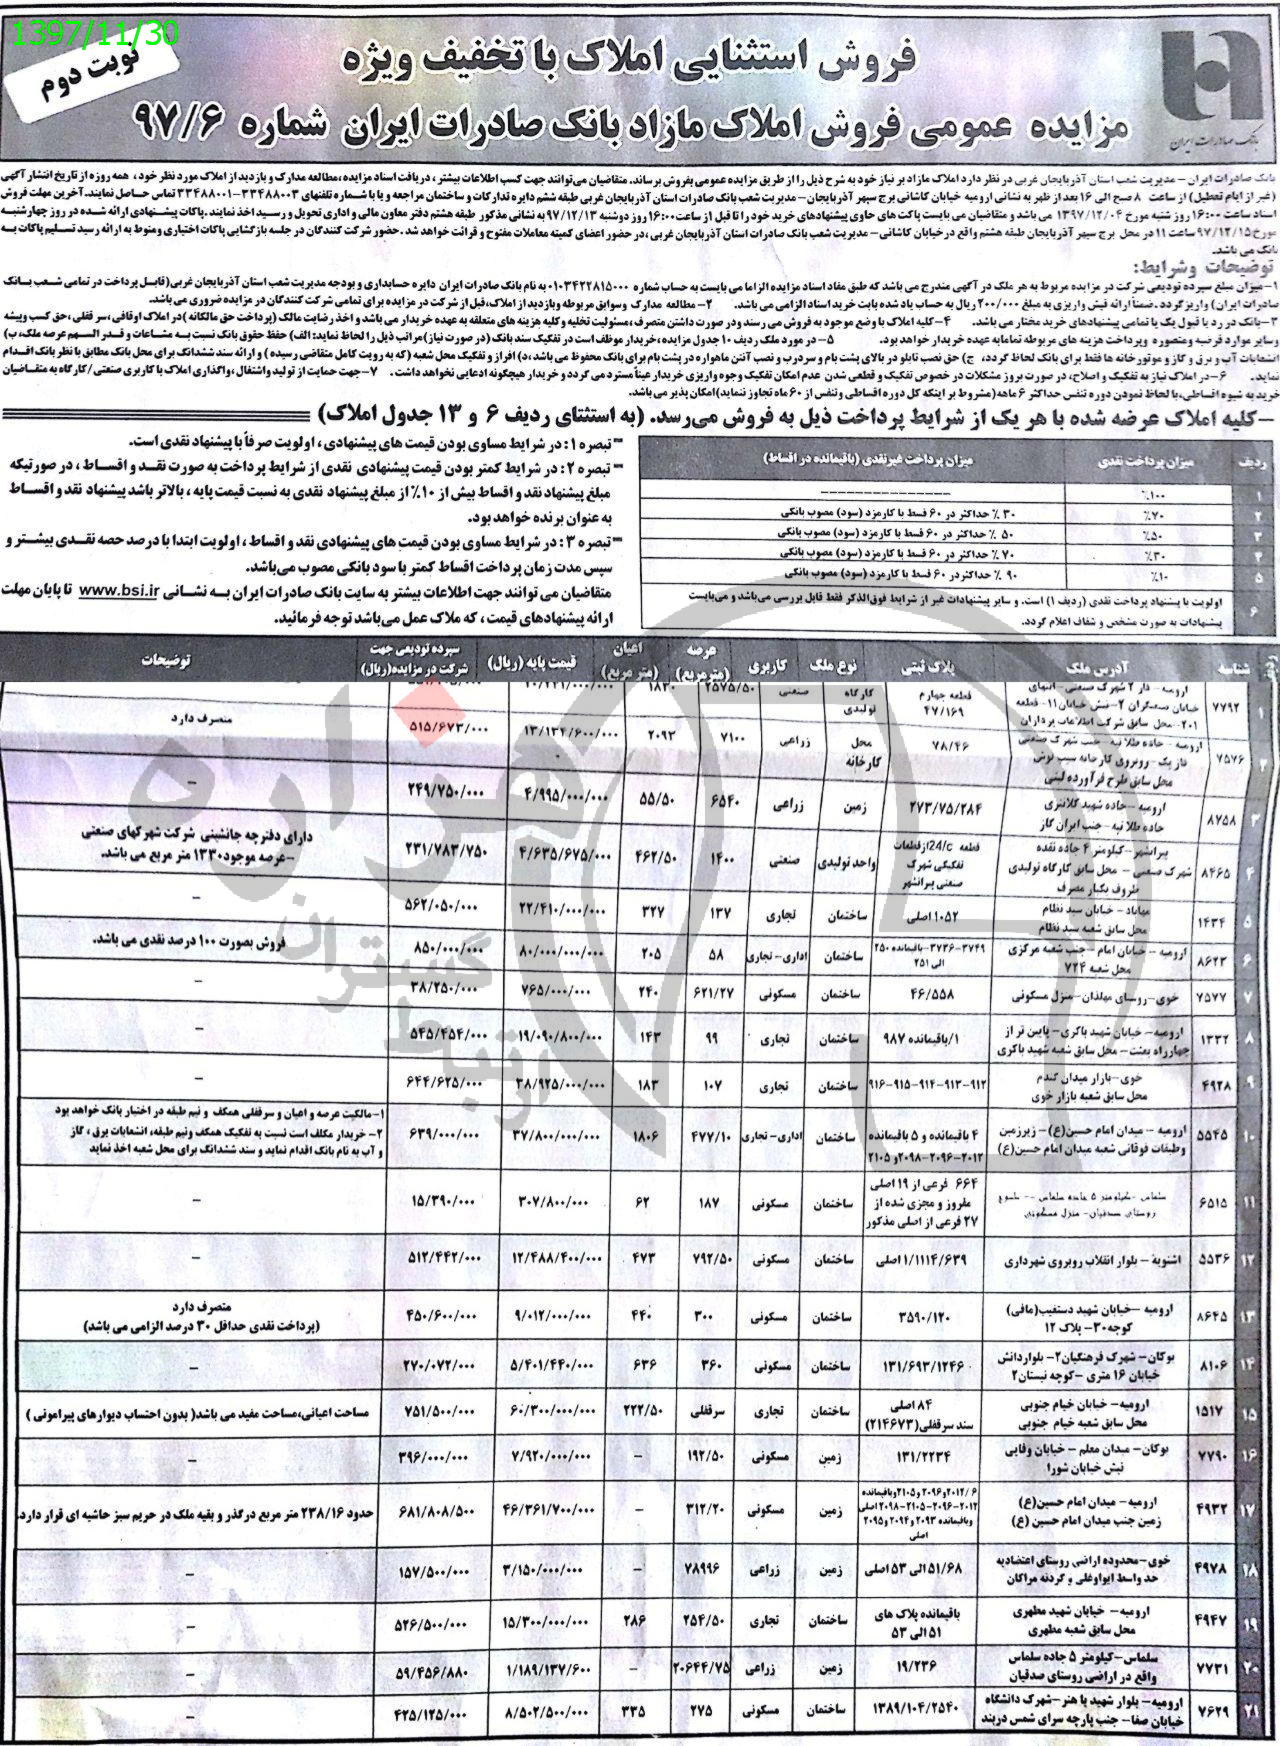 1397/11/30
نوبت دوم
بانک صادرات ایران
فروش استثنایی املاک با تخفیف ویژه
مزایده عمومی فروش املاک مازاد بانک صادرات ایران شماره ۹۷/۶
بانک صادرات ایران - مدیریت شعب استان آذربایجان غربی در نظر دارد املاک مازاد بر نیاز خود به شرح ذیل را از طریق مزایده عمومی بفروش برساند. متقاضیان می‌توانند جهت کسب اطلاعات بیشتر، دریافت اسناد مزایده، مطالعه مدارک و بازدید از املاک مورد نظر خود، همه روزه از تاریخ انتشار آگهی
(غیر از ایام تعطیل) از ساعت ۸ صبح الی ۱۶ بعد از ظهر به نشانی ارومیه خیابان کاشانی برج سپهر آذربایجان- مدیریت شعب بانک صادرات استان آذربایجان غربی طبقه ششم دایره تدارکات و ساختمان مراجعه و یا با شماره تلفنهای ۳۳۴۸۸۰۰۳-۳۳۴۸۸۰۰۱ تماس حاصل نمایند. آخرین مهلت فروش
اسناد ساعت ۱۶:۰۰ روز شنبه مورخ ۱۳۹۷/۱۲/۰۴ می باشد و متقاضیان می بایست پاکت های حاوی پیشنهادهای خرید خود را تا قبل از ساعت ۱۶:۰۰ روز دوشنبه ۹۷/۱۲/۱۳ به نشانی مذکور طبقه هشتم دفتر معاون مالی و اداری تحویل و رسید اخذ نمایند. پاکات پیشنهادی ارائه شده در روز چهارشنبه
مورخ ۹۷/۱۲/۱۵ ساعت ۱۱ در محل برج سپهر آذربایجان طبقه هشتم واقع در خیابان کاشانی- مدیریت شعب بانک صادرات استان آذربایجان غربی، در حضور اعضای کمیته معاملات مفتوح و قرائت خواهد شد. حضور شرکت کنندگان در جلسه بازگشایی پاکات اختیاری و منوط به ارائه رسید تسلیم پاکات به
بانک می باشد.
توضیحات وشرایط:
۱-میزان مبلغ سپرده تودیعی شرکت در مزایده مربوط به هر ملک در آگهی مندرج می باشد که طبق مفاد اسناد مزایده الزاما می بایست به حساب شماره ۰۱۰۳۴۲۲۸۱۵۰۰۰ به نام بانک صادرات ایران دایره حسابداری و بودجه مدیریت شعب استان آذربایجان غربی(قابل پرداخت در تمامی شعب بانک
صادرات ایران) واریز گردد. ضمناً ارائه فیش واریزی به مبلغ ۲۰۰/۰۰۰ ریال به حساب یاد شده بابت خرید اسناد الزامی می باشد. ۲-مطالعه مدارک وسوابق مربوطه وبازدید از املاک، قبل از شرکت در مزایده برای تمامی شرکت کنندگان در مزایده ضروری می باشد.
۳-بانک در رد یا قبول یک یا تمامی پیشنهادهای خرید مختار می باشد. ۴-کلیه املاک با وضع موجود به فروش می رسند ودر صورت داشتن متصرف، مسئولیت تخلیه وکلیه هزینه های متعلقه به عهده خریدار می باشد و اخذ رضایت مالک (پرداخت حق مالکانه )در املاک اوقافی، سر قفلی، حق کسب وپیشه
وسایر موارد فرضیه ومتصوره وپرداخت هزینه های مربوطه تمامابه عهده خریدار خواهد بود. ۵-در مورد ملک ردیف ۱۰ جدول مزایده، خریدار موظف است در تفکیک سند بانک (در صورت نیاز) مراتب ذیل را لحاظ نماید: الف) حفظ حقوق بانک نسبت به مشاعات و قدر السهم عرصه ملک، ب)
انشعابات آب و برق و گاز و موتورخانه ها فقط برای بانک لحاظ گردد، ج) حق نصب تابلو در بالای پشت بام و سردرب و نصب آنتن ماهواره در پشت بام برای بانک محفوظ می باشد، د) افراز و تفکیک محل شعبه (که به رویت کامل متقاضی رسیده ) و ارائه سند ششدانگ برای محل بانک مطابق با نظر بانک اقدام
نماید. ۶-در املاک نیاز به تفکیک و اصلاح، در صورت بروز مشکلات در خصوص تفکیک و قطعی شدن عدم امکان تفکیک وجوه واریزی خریدار عیناً مسترد می گردد و خریدار هیچگونه ادعایی نخواهد داشت. ۷-جهت حمایت از تولید واشتغال، واگذاری املاک با کاربری صنعتی/کارگاه به متقاضیان
خرید به شیوه اقساطی، با لحاظ نمودن دوره تنفس حداکثر ۶ ماهه(مشروط بر اینکه کل دوره اقساطی وتنفس از ۶۰ ماه تجاوز ننماید)امکان پذیر می باشد.
-کلیه املاک عرضه شده با هر یک از شرایط پرداخت ذیل به فروش می‌رسد. (به استثنای ردیف ۶ و ۱۳ جدول املاک)
ردیف میزان پرداخت نقدی میزان پرداخت غیرنقدی (باقیمانده در اقساط)
۱ ٪۱۰۰ ---------------
۲ ٪۷۰ ۳۰ ٪ حداکثر در ۶۰ قسط با کارمزد (سود) مصوب بانکی
۳ ٪۵۰ ۵۰ ٪ حداکثر در ۶۰ قسط با کارمزد (سود) مصوب بانکی
۴ ٪۳۰ ۷۰ ٪ حداکثر در ۶۰ قسط با کارمزد (سود) مصوب بانکی
۵ ٪۱۰ ۹۰ ٪ حداکثر در ۶۰ قسط با کارمزد (سود) مصوب بانکی
۶ اولویت با پیشنهاد پرداخت نقدی (ردیف ۱) است. و سایر پیشنهادات غیر از شرایط فوق‌الذکر فقط قابل بررسی می‌باشد و می‌بایست
پیشنهادات به صورت مشخص و شفاف اعلام گردد.
-تبصره ۱: در شرایط مساوی بودن قیمت های پیشنهادی، اولویت صرفاً با پیشنهاد نقدی است.
-تبصره ۲: در شرایط کمتر بودن قیمت پیشنهادی نقدی از شرایط پرداخت به صورت نقد و اقساط، در صورتیکه
مبلغ پیشنهاد نقد و اقساط بیش از ۱۰٪ از مبلغ پیشنهاد نقدی به نسبت قیمت پایه، بالاتر باشد پیشنهاد نقد و اقساط
به عنوان برنده خواهد بود.
-تبصره ۳: در شرایط مساوی بودن قیمت های پیشنهادی نقد و اقساط، اولویت ابتدا با درصد حصه نقدی بیشتر و
سپس مدت زمان پرداخت اقساط کمتر با سود بانکی مصوب می‌باشد.
متقاضیان می توانند جهت اطلاعات بیشتر به سایت بانک صادرات ایران به نشانی www.bsi.ir تا پایان مهلت
ارائه پیشنهادهای قیمت، که ملاک عمل می‌باشد توجه فرمائید.
ردیف شناسه آدرس ملک پلاک ثبتی نوع ملک کاربری عرصه (مترمربع) اعیان (متر مربع) قیمت پایه (ریال) سپرده تودیعی جهت شرکت در مزایده(ریال) توضیحات
۱ ۷۷۹۲ ارومیه - فاز ۲ شهرک صنعتی- انتهای خیابان صنعتگران ۲- نبش خیابان ۱۱- قطعه ۲۰۱- محل سابق شرکت اطلاعات پردازان قطعه چهارم ۴۷/۱۶۹ کارگاه تولیدی صنعتی ۲۵۷۵/۵۰ ۱۸۲۰
۲ ۷۵۷۶ ارومیه - جاده طلائیه - جنب شهرک صنعتی فاز یک - روبروی کارخانه سیب نوش محل سابق طرح فرآورده لبنی ۷۸/۴۶ محل کارخانه زراعی ۷۱۰۰ ۲۰۹۳ ۱۳/۱۳۴/۶۰۰/۰۰۰ ۵۱۵/۶۷۳/۰۰۰ متصرف دارد
۳ ۸۷۵۸ ارومیه - جاده شهید کلانتری جاده طلائیه - جنب ایران گاز ۲۷۳/۷۵/۲۸۴ زمین زراعی ۶۵۴۰ ۵۵/۵۰ ۴/۹۹۵/۰۰۰/۰۰۰ ۲۴۹/۷۵۰/۰۰۰ -
۴ ۸۴۶۵ پیرانشهر-کیلومتر ۴ جاده نقده شهرک صنعتی - محل سابق کارگاه تولیدی ظروف یکبار مصرف قطعه 24/c از قطعات تفکیکی شهرک صنعتی پیرانشهر واحد تولیدی صنعتی ۱۴۰۰ ۴۶۲/۵۰ ۴/۶۳۵/۶۷۵/۰۰۰ ۲۳۱/۷۸۳/۷۵۰ دارای دفترچه جانشینی شرکت شهرکهای صنعتی -عرصه موجود ۱۳۳۰ متر مربع می باشد.
۵ ۱۴۳۴ مهاباد - خیابان سید نظام محل سابق شعبه سید نظام ۱۰۵۲ اصلی ساختمان تجاری ۱۳۷ ۳۲۷ ۲۲/۴۱۰/۰۰۰/۰۰۰ ۵۶۲/۰۵۰/۰۰۰ -
۶ ۸۶۲۳ ارومیه - خیابان امام - جنب شعبه مرکزی محل شعبه ۷۲۴ ۳۷۴۹-۳۷۳۶-باقیمانده ۲۵۰ الی ۲۵۱ ساختمان اداری-تجاری ۵۸ ۲۰۵ ۸۰/۰۰۰/۰۰۰/۰۰۰ ۸۵۰/۰۰۰/۰۰۰ فروش بصورت ۱۰۰ درصد نقدی می باشد.
۷ ۷۵۷۷ خوی-روسای مهلذان-منزل مسکونی ۴۶/۵۵۸ ساختمان مسکونی ۶۲۱/۲۷ ۲۴۰ ۷۶۵/۰۰۰/۰۰۰ ۳۸/۲۵۰/۰۰۰ -
۸ ۱۳۳۲ ارومیه- خیابان شهید باکری- پایین تر از چهارراه بعثت- محل سابق شعبه شهید باکری ۱/باقیمانده ۹۸۷ ساختمان تجاری ۹۹ ۱۴۳ ۱۹/۰۹۰/۸۰۰/۰۰۰ ۵۴۵/۴۵۴/۰۰۰ -
۹ ۴۹۲۸ خوی-بازار میدان گندم محل سابق شعبه بازار خوی ۹۱۲-۹۱۳-۹۱۴-۹۱۵-۹۱۶ ساختمان تجاری ۱۰۷ ۱۸۳ ۳۸/۹۲۵/۰۰۰/۰۰۰ ۶۴۴/۶۲۵/۰۰۰ -
۱۰ ۵۵۴۵ ارومیه - میدان امام حسین(ع)- زیرزمین وطبقات فوقانی شعبه میدان امام حسین(ع) ۴ باقیمانده و ۵ باقیمانده ۲۰۱۲-۲۰۹۶-۲۰۹۸و ۲۱۰۵ ساختمان اداری-تجاری ۴۷۷/۱۰ ۱۸۰۶ ۳۷/۸۰۰/۰۰۰/۰۰۰ ۶۳۹/۰۰۰/۰۰۰ ۱-مالکیت عرصه و اعیان و سرقفلی همکف و نیم طبقه در اختیار بانک خواهد بود ۲- خریدار مکلف است نسبت به تفکیک همکف ونیم طبقه، انشعابات برق، گاز و آب به نام بانک اقدام نماید و سند ششدانگ برای محل شعبه اخذ نماید
۱۱ ۶۵۱۵ سلماس -کیلومتر ۵ جاده سلماس روستای صدقیان- منزل مسکونی ۶۶۴ فرعی از ۱۹ اصلی مفروز و مجزی شده از ۲۷ فرعی از اصلی مذکور ساختمان مسکونی ۱۸۷ ۶۲ ۳۰۷/۸۰۰/۰۰۰ ۱۵/۳۹۰/۰۰۰ -
۱۲ ۵۵۳۶ اشنویه - بلوار انقلاب روبروی شهرداری ۱/۱۱۱۴/۶۳۹ اصلی ساختمان مسکونی ۷۹۲/۵۰ ۴۷۳ ۱۲/۴۸۸/۴۰۰/۰۰۰ ۵۱۲/۴۴۲/۰۰۰ -
۱۳ ۸۶۴۵ ارومیه -خیابان شهید دستغیب(مافی) کوچه ۳۰- پلاک ۱۲ ۳۵۹۰/۱۲۰ ساختمان مسکونی ۳۰۰ ۴۴۰ ۹/۰۱۲/۰۰۰/۰۰۰ ۴۵۰/۶۰۰/۰۰۰ متصرف دارد (پرداخت نقدی حداقل ۳۰ درصد الزامی می باشد)
۱۴ ۸۱۰۶ بوکان- شهرک فرهنگیان ۲- بلواردانش خیابان ۱۶ متری -کوچه نیستان ۲ ۱۳۱/۶۹۳/۱۲۴۶ ساختمان مسکونی ۳۶۰ ۶۳۶ ۵/۴۰۱/۴۴۰/۰۰۰ ۲۷۰/۰۷۲/۰۰۰ -
۱۵ ۱۵۱۷ ارومیه - خیابان خیام جنوبی محل سابق شعبه خیام جنوبی ۸۴ اصلی سند سرقفلی(۲۱۴۶۷۳) ساختمان تجاری سرقفلی ۲۲۲/۵۰ ۶۰/۳۰۰/۰۰۰/۰۰۰ ۷۵۱/۵۰۰/۰۰۰ مساحت اعیانی، مساحت مفید می باشد( بدون احتساب دیوارهای پیرامونی )
۱۶ ۷۷۹۰ بوکان- میدان معلم - خیابان وفایی نبش خیابان شورا ۱۳۱/۲۲۳۴ زمین مسکونی ۱۹۲/۵۰ - ۷/۹۲۰/۰۰۰/۰۰۰ ۳۹۶/۰۰۰/۰۰۰ -
۱۷ ۴۹۳۲ ارومیه - میدان امام حسین(ع) زمین جنب میدان امام حسین (ع) ۶ /۲۰۱۲و۲۰۹۶ و۲۱۰۵وباقیمانده ۲۰۱۲-۲۰۹۶-۲۱۰۵-۲۰۹۸اصلی وباقیمانده ۲۰۹۳ و ۲۰۹۴ و ۲۰۹۵ اصلی زمین مسکونی ۳۱۲/۲۰ - ۴۶/۳۶۱/۷۰۰/۰۰۰ ۶۸۱/۸۰۸/۵۰۰ حدود ۲۳۸/۱۶ متر مربع درگذر و بقیه ملک در حریم سبز حاشیه ای قرار دارد.
۱۸ ۴۹۷۸ خوی-محدوده اراضی روستای اعتضادیه حد واسط ایواوغلی و گردنه مراکان ۵۱/۶۸الی ۵۳ اصلی زمین زراعی ۷۸۹۹۶ - ۳/۱۵۰/۰۰۰/۰۰۰ ۱۵۷/۵۰۰/۰۰۰ -
۱۹ ۴۹۴۷ ارومیه - خیابان شهید مطهری محل سابق شعبه مطهری باقیمانده پلاک های ۵۱ الی ۵۳ ساختمان تجاری ۲۵۴/۵۰ ۲۸۶ ۱۵/۳۰۰/۰۰۰/۰۰۰ ۵۲۶/۵۰۰/۰۰۰ -
۲۰ ۷۷۳۱ سلماس-کیلومتر ۵ جاده سلماس واقع در اراضی روستای صدقیان ۱۹/۲۳۶ زمین زراعی ۲۰۶۴۴/۷۵ - ۱/۱۸۹/۱۳۷/۶۰۰ ۵۹/۴۵۶/۸۸۰ -
۲۱ ۷۶۲۹ ارومیه- بلوار شهید با هنر-شهرک دانشگاه خیابان صفا- جنب پارچه سرای شمس دربند ۱۳۸۹/۱۰۴/۲۵۴۰ ساختمان مسکونی ۲۷۵ ۳۳۵ ۸/۵۰۲/۵۰۰/۰۰۰ ۴۲۵/۱۲۵/۰۰۰ -
هزاره
گستران
ارتباط